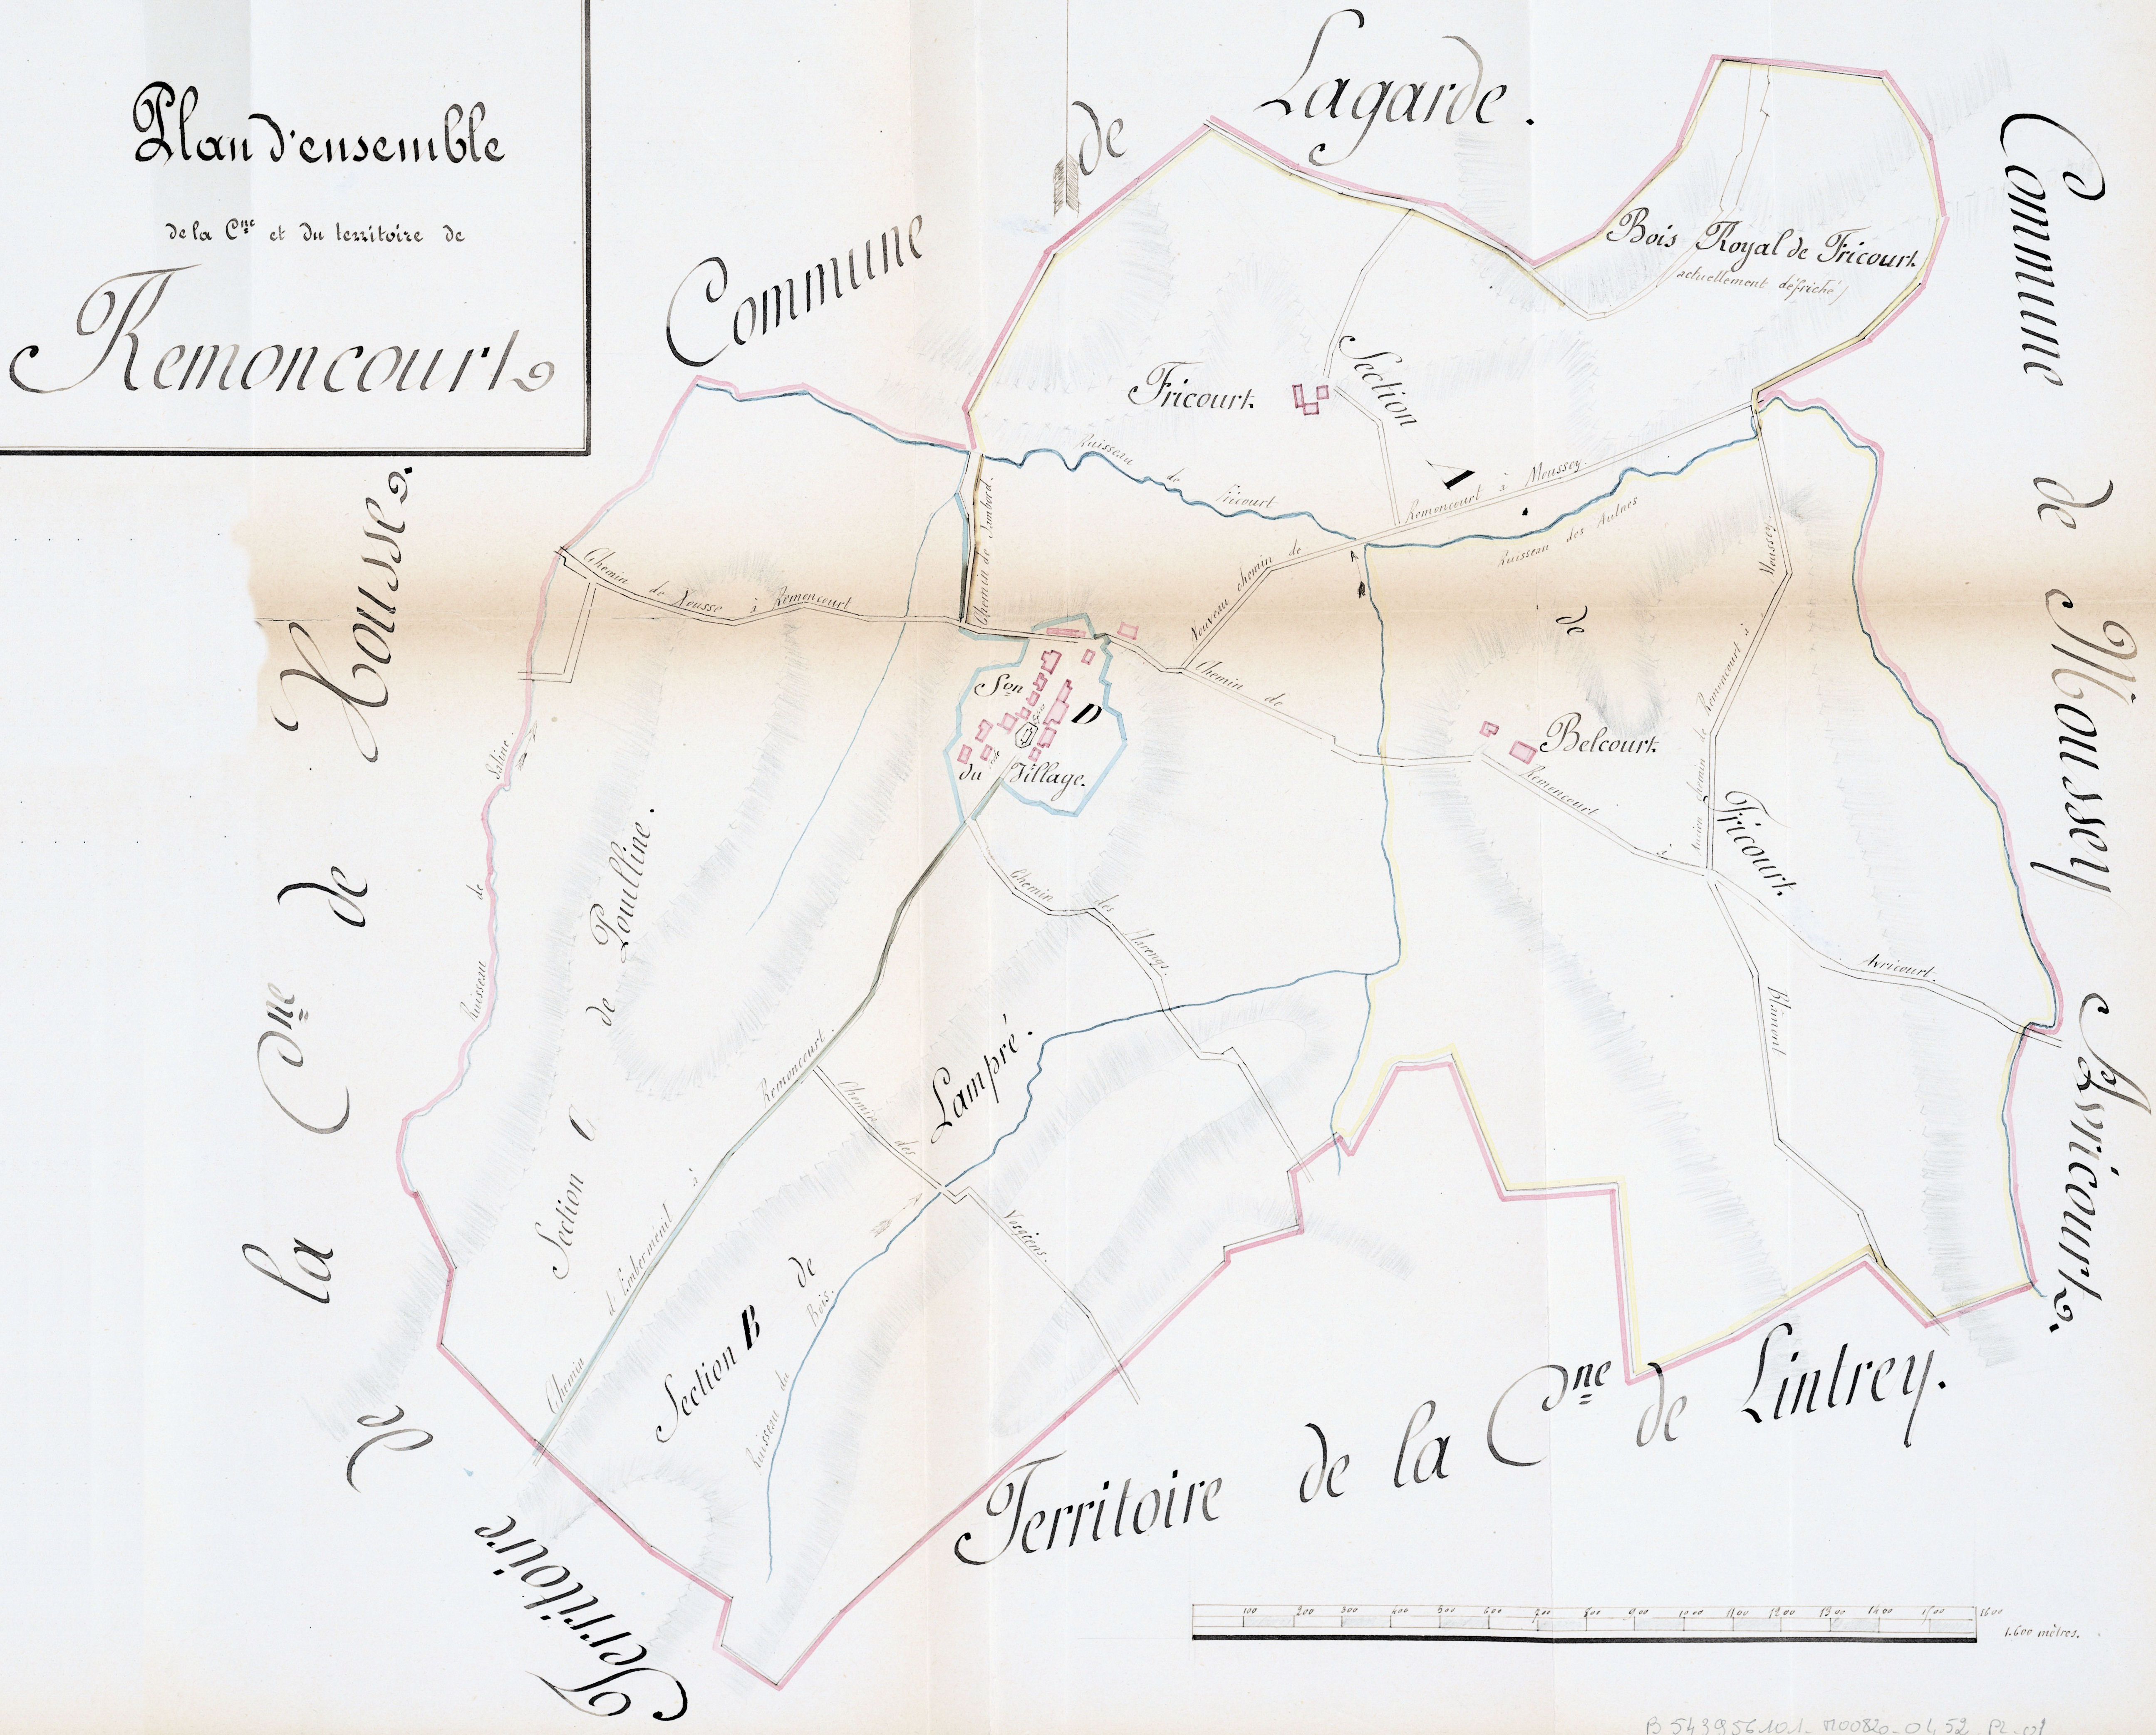 Plan d'ensemble
de la Cne et du territoire de
Remoncourt
Commune de Lagarde.
Commune de Moussey
Avricourt.
Bois Royal de Fricourt.
actuellement défriché
Fricourt.
Section A de Fricourt.
Ruisseau de Fricourt
Remoncourt à Moussey.
Nouveau chemin de
Ruisseau des Aulnes
Chemin de Xousse à Remoncourt
Son D
du Village.
Chemin de
Belcourt.
Remoncourt à
Avricourt.
Blâmont
Ancien chemin de Remoncourt à Moussey.
Ruisseau de Saline.
Section C de Poulline.
Chemin des
Lampré.
Chemin d'Emberménil à Remoncourt.
Chemin des Vosgiens.
Section B de
Ruisseau du Bois.
Territoire de la Cne de Xousse.
Territoire de la Cne de Lintrey.
100 200 300 400 500 600 700 800 900 1000 1100 1200 1300 1400 1500 1600
1.600 mètres.